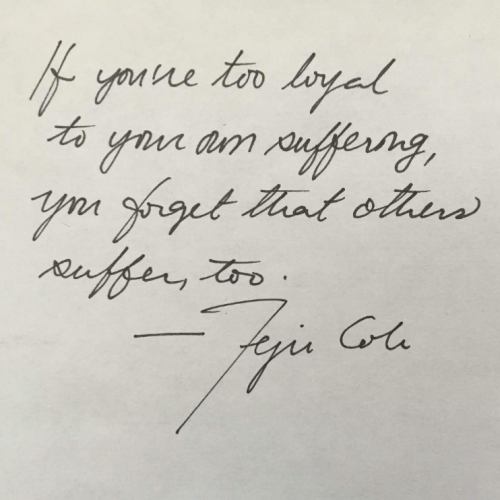 If you're too loyal
to your own suffering,
you forget that others
suffer, too.
— Teju Cole